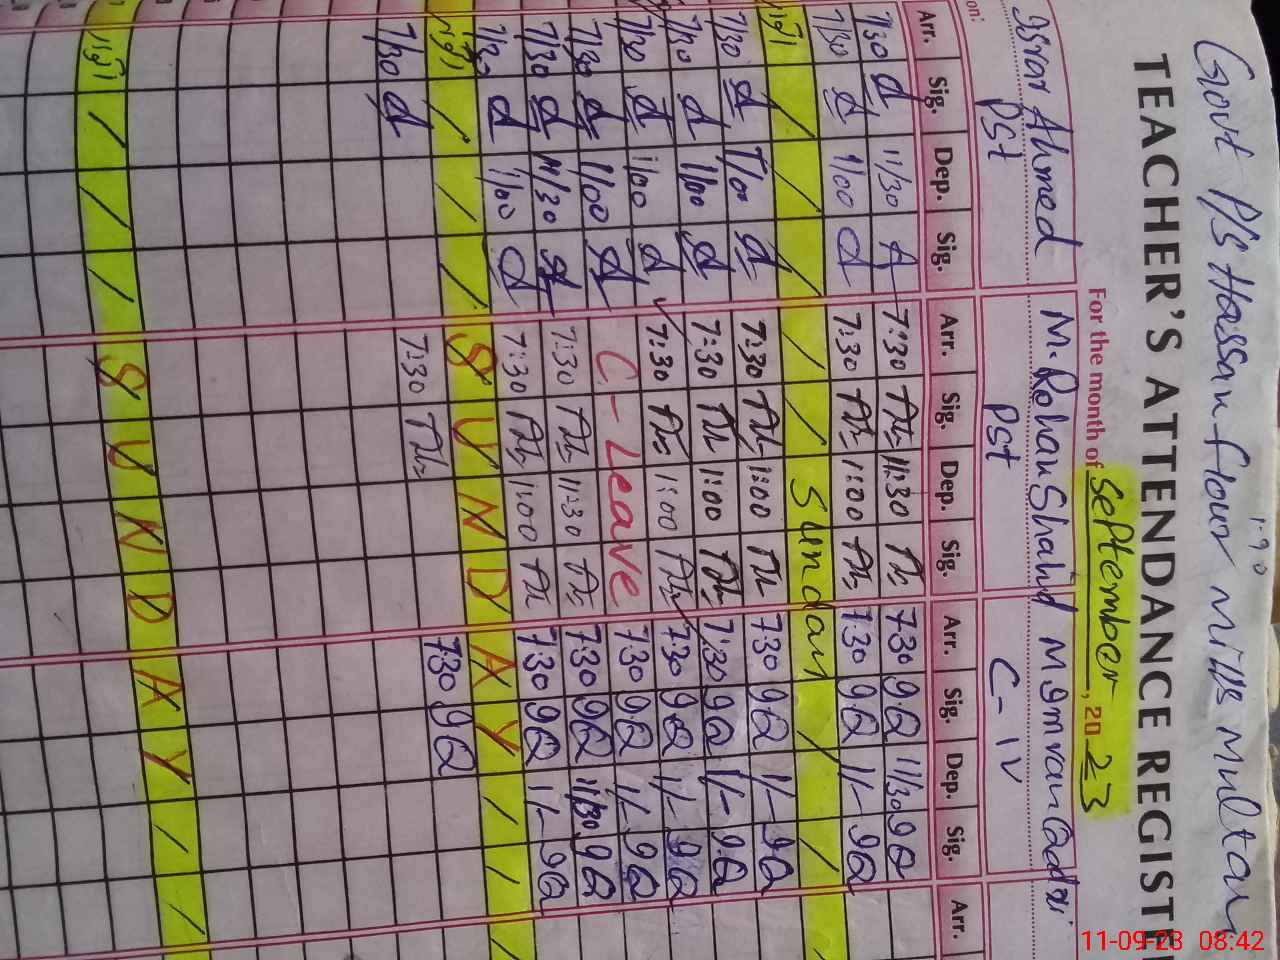 Govt P/S Hassan flour mills Multan
TEACHER'S ATTENDANCE REGISTE
For the month of September, 2023
Israr Ahmed M. Rehan Shahid M Imran Qadri
on: PST PST C-IV
Arr. Sig. Dep. Sig. Arr. Sig. Dep. Sig. Arr. Sig. Dep. Sig. Arr.
7/30 11/30 7:30 11:30 730 9Q 11/30 9Q
7/30 1/00 7:30 1:00 730 9Q 1/- 9Q
Sunday
7/30 1/00 7:30 1:00 7:30 9Q 1/- 9Q
7/30 1/00 7:30 1:00 7:30 9Q 1/- 9Q
7/30 1/00 7:30 1:00 7:30 9Q 1/- 9Q
7/30 1/00 C-Leave 7:30 9Q 1/- 9Q
7/30 11/30 7:30 11:30 7:30 9Q 11/30 9Q
7/30 1/00 7:30 1:00 7:30 9Q 1/- 9Q
SUNDAY
7/30 7:30 730 9Q
SUNDAY
11-09-23 08:42